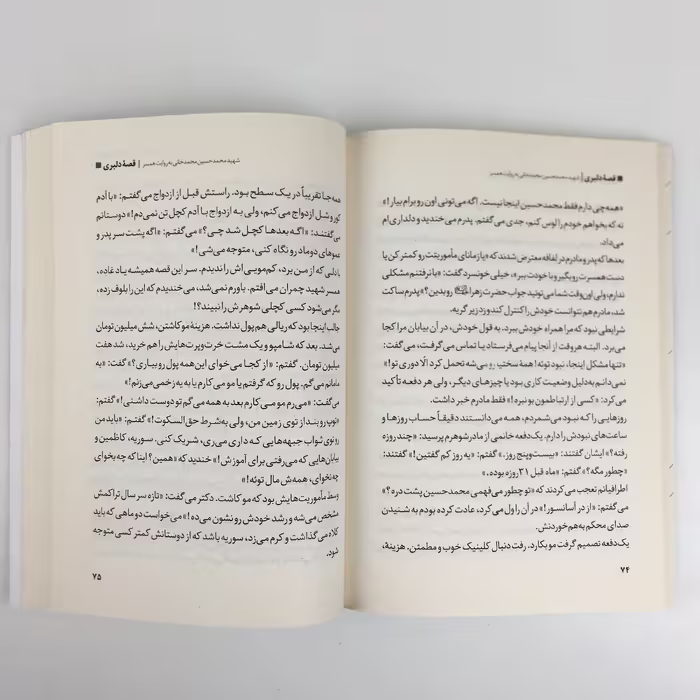 ■ قصهٔ دلبری | شهید محمدحسین محمدخانی به روایت همسر
«همه‌چی دارم فقط محمدحسین اینجا نیست. اگه می‌تونی اون رو برام بیار!»
نه که بخواهم خودم را لوس کنم، جدی می‌گفتم. پدرم می‌خندید و دلداری‌ام
می‌داد.
بعدها که پدر و مادرم در لفافه معترض شدند که «یا زمانای مأموریتت رو کمتر کن یا
دست همسرت رو بگیر و با خودت ببر»، خیلی خونسرد گفت: «با نرفتنم مشکلی
ندارم، ولی اون‌وقت شما می‌تونید جواب حضرت زهرا رو بدین؟» پدرم ساکت
شد، مادرم هم نتوانست خودش را کنترل کند و زد زیر گریه.
شرایطی نبود که مرا همراه خودش ببرد. به قول خودش، در آن بیابان مرا کجا
می‌برد. البته هر وقت از آنجا پیام می‌فرستاد یا تماس می‌گرفت، می‌گفت:
«تنها مشکل اینجا، نبود توئه! همهٔ سختیا رو می‌شه تحمل کرد الّا دوری تو!»
نمی‌دانم به‌دلیل وضعیت کاری بود یا چیزهای دیگر، ولی هر دفعه تأکید
می‌کرد: «کسی از ارتباطمون بو نبره!» فقط مادرم خبر داشت.
روزهایی را که نبود می‌شمردم، همه می‌دانستند دقیقاً حساب روزها و
ساعت‌های نبودش را دارم. یک‌دفعه خانمی از مادرشوهرم پرسید: «چند روزه
رفته؟» ایشان گفتند: «بیست‌وپنج روز.» گفتم: «یه روز کم گفتین!» گفتند:
«چطور مگه؟» گفتم: «ماه قبل ۳۱ روزه بوده.»
اطرافیانم تعجب می‌کردند که «تو چطور می‌فهمی محمدحسین پشت دره؟»
می‌گفتم: «از در آسانسور!» در آن را ول می‌کرد، عادت کرده بودم به شنیدن
صدای محکم به‌هم‌خوردنش.
یک‌دفعه تصمیم گرفت مو بکارد. رفت دنبال کلینیک خوب و مطمئن. هزینهٔ،
۷۴
شهید محمدحسین محمدخانی به روایت همسر | قصهٔ دلبری ■
همه جا تقریباً در یک سطح بود. راستش قبل از ازدواج می‌گفتم: «با آدم
کور و شل ازدواج می‌کنم، ولی به ازدواج با آدم کچل تن نمی‌دم!» دوستانم
می‌گفتند: «اگه بعدها کچل شد چی؟» می‌گفتم: «اگه پشت سر پدر و
عموهای دوماد رو نگاه کنی، متوجه می‌شی!»
با دلی که از من برد، کم‌مویی‌اش را ندیدم. سر این قصه همیشه یاد غاده،
همسر شهید چمران می‌افتم. باورم نمی‌شد، می‌خندیدم که این را بلوف زده،
مگر می‌شود کسی کچلی شوهرش را نبیند؟!
جالب اینجا بود که ریالی هم پول نداشت. هزینهٔ موکاشتن، شش میلیون تومان
شد. بعد که شامپو و یک مشت خرت‌وپرت‌هایش را هم خرید، شد هفت
میلیون تومان. گفتم: «از کجا می‌خوای این‌همه پول رو بیاری؟» گفت: «به
مامانم می‌گم. پول رو که گرفتم یا مو می‌کارم یا به یه زخمی می‌زنم!»
می‌گفت: «می‌رم مو می‌کارم بعد به همه می‌گم تو دوست داشتی!» گفتم:
«توپ رو بنداز توی زمین من، ولی به‌شرط حق‌السکوت!» گفتم: «باید من
رو توی ثواب جبهه‌هایی که داری می‌ری، شریک کنی. سوریه، کاظمین و
بیابان‌هایی که می‌رفتی برای آموزش!» خندید که «همین؟ اینا که چه بخوای
چه نخوای، همه‌ش مال توئه!»
وسط مأموریت‌هایش بود که مو کاشت. دکتر می‌گفت: «تازه سر سال تراکمش
مشخص می‌شه و رشد خودش رو نشون می‌ده!» می‌خواست دو ماهی که باید
کلاه می‌گذاشت و کرم می‌زد، سوریه باشد که از دوستانش کمتر کسی متوجه
شود.
۷۵